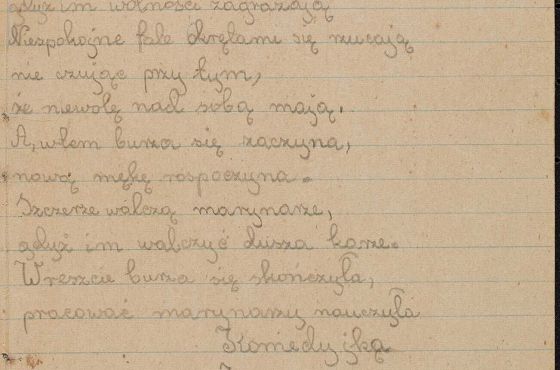 gdyż im wolności zagrażają
Niespokojne fale okrętami się rzucają
nie czując przy tym,
że niewolę nad sobą mają.
A, wtem burza się zaczyna,
nową mękę rospoczyna.
Szczerze walczą marynarze,
gdyż im walczyć dusza karze.
Wreszcie burza się skończyła,
pracować marynarzy nauczyła
Komedyjką